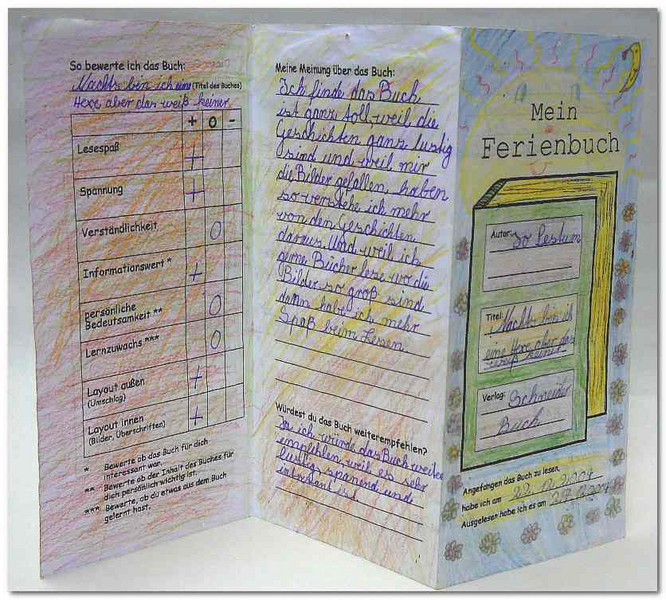 So bewerte ich das Buch:
Nachts bin ich eine (Titel des Buches)
Hexe aber das weiß keiner
+ O -
Lesespaß +
Spannung +
Verständlichkeit O
Informationswert * +
persönliche
Bedeutsamkeit ** O
Lernzuwachs *** O
Layout außen +
(Umschlag)
Layout innen +
(Bilder, Überschriften)
* Bewerte ob das Buch für dich
interessant war.
** Bewerte ob der Inhalt des Buches für
dich persönlich wichtig ist.
*** Bewerte, ob du etwas aus dem Buch
gelernt hast.
Meine Meinung über das Buch:
Ich finde das Buch
ist ganz toll, weil die
Geschichten ganz lustig
sind und weil mir
die Bilder gefallen haben
so verstehe ich mehr
von den Geschichten
daraus. Und weil ich
gerne Bücher lese wo die
Bilder so groß sind
dann habe ich mehr
Spaß beim Lesen.
Würdest du das Buch weiterempfehlen?
Ja ich würde das Buch weiter
empfehlen, weil es sehr
lustig, spanend und
Mein
Ferienbuch
Autor: Jo Pestum
Titel: Nachts bin ich
eine Hexe aber das
weiß keiner
Verlag: Schneider
Buch
Angefangen das Buch zu lesen,
habe ich am
Ausgelesen habe ich es am